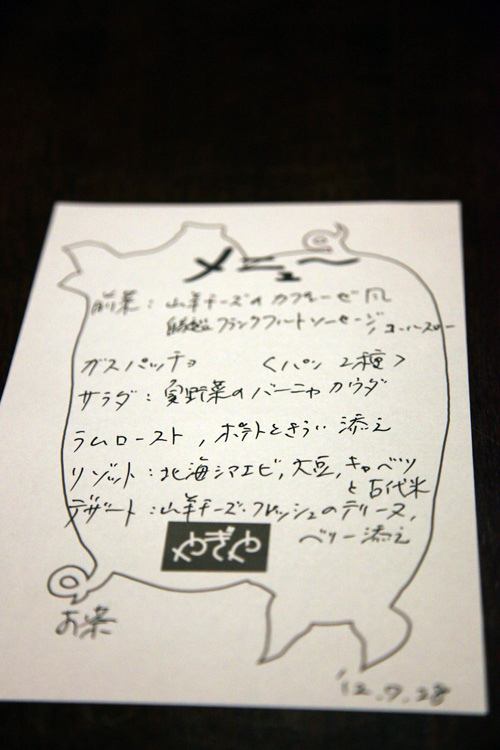 メニュ〜
前菜：山羊チーズのカプレーゼ風
自家製フランクフルトソーセージ/コールスロー
ガスパッチョ 〈パン2種〉
サラダ：夏野菜のバーニャカウダ
ラムロースト，ポテトときゅうり添え
リゾット：北海シマエビ，大豆，キャベツ
と古代米
デザート：山羊チーズ・フレッシュのテリーヌ，
ベリー添え
やぎや
お茶
'12.7.28